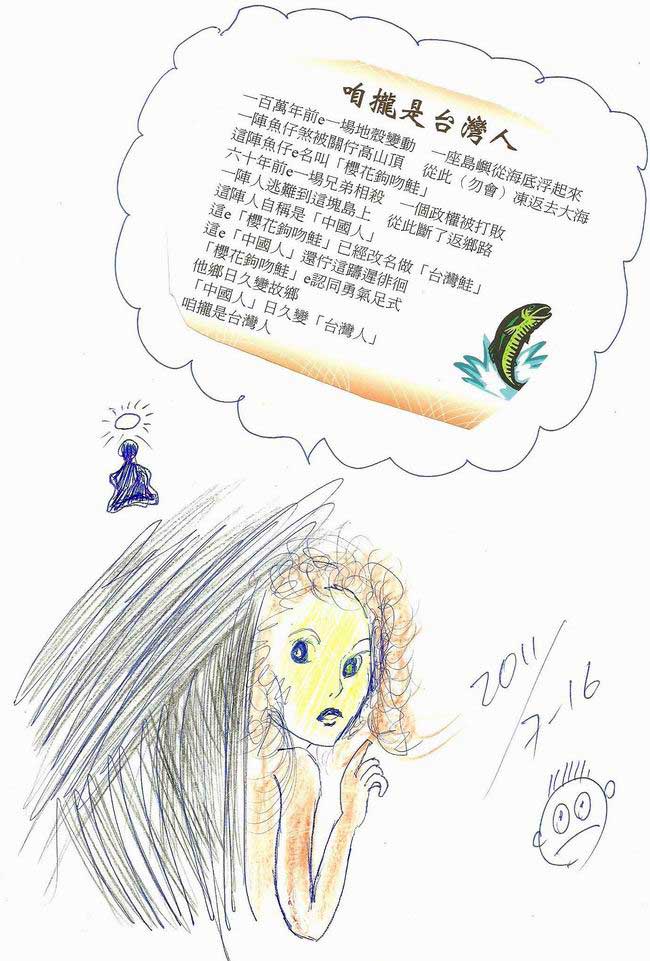 咱攏是台灣人
一百萬年前e一場地殼變動　一座島嶼從海底浮起來
一陣魚仔煞被關佇高山頂　從此（勿會）凍返去大海
這陣魚仔e名叫「櫻花鉤吻鮭」
六十年前e一場兄弟相殺　一個政權被打敗
一陣人逃難到這塊島上　從此斷了返鄉路
這陣人自稱是「中國人」
這e「櫻花鉤吻鮭」已經改名做「台灣鮭」
這e「中國人」還佇這躊遲徘徊
「櫻花鉤吻鮭」e認同勇氣足式
他鄉日久變故鄉
「中國人」日久變「台灣人」
咱攏是台灣人
2011/7-16